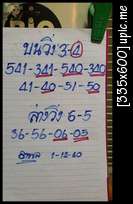 บนวิ่ง 3-4
541-341-540-340
41-40-51-50
ล่างวิ่ง 6-5
36-56-06-05
1-12-60
[335x600] upic.me